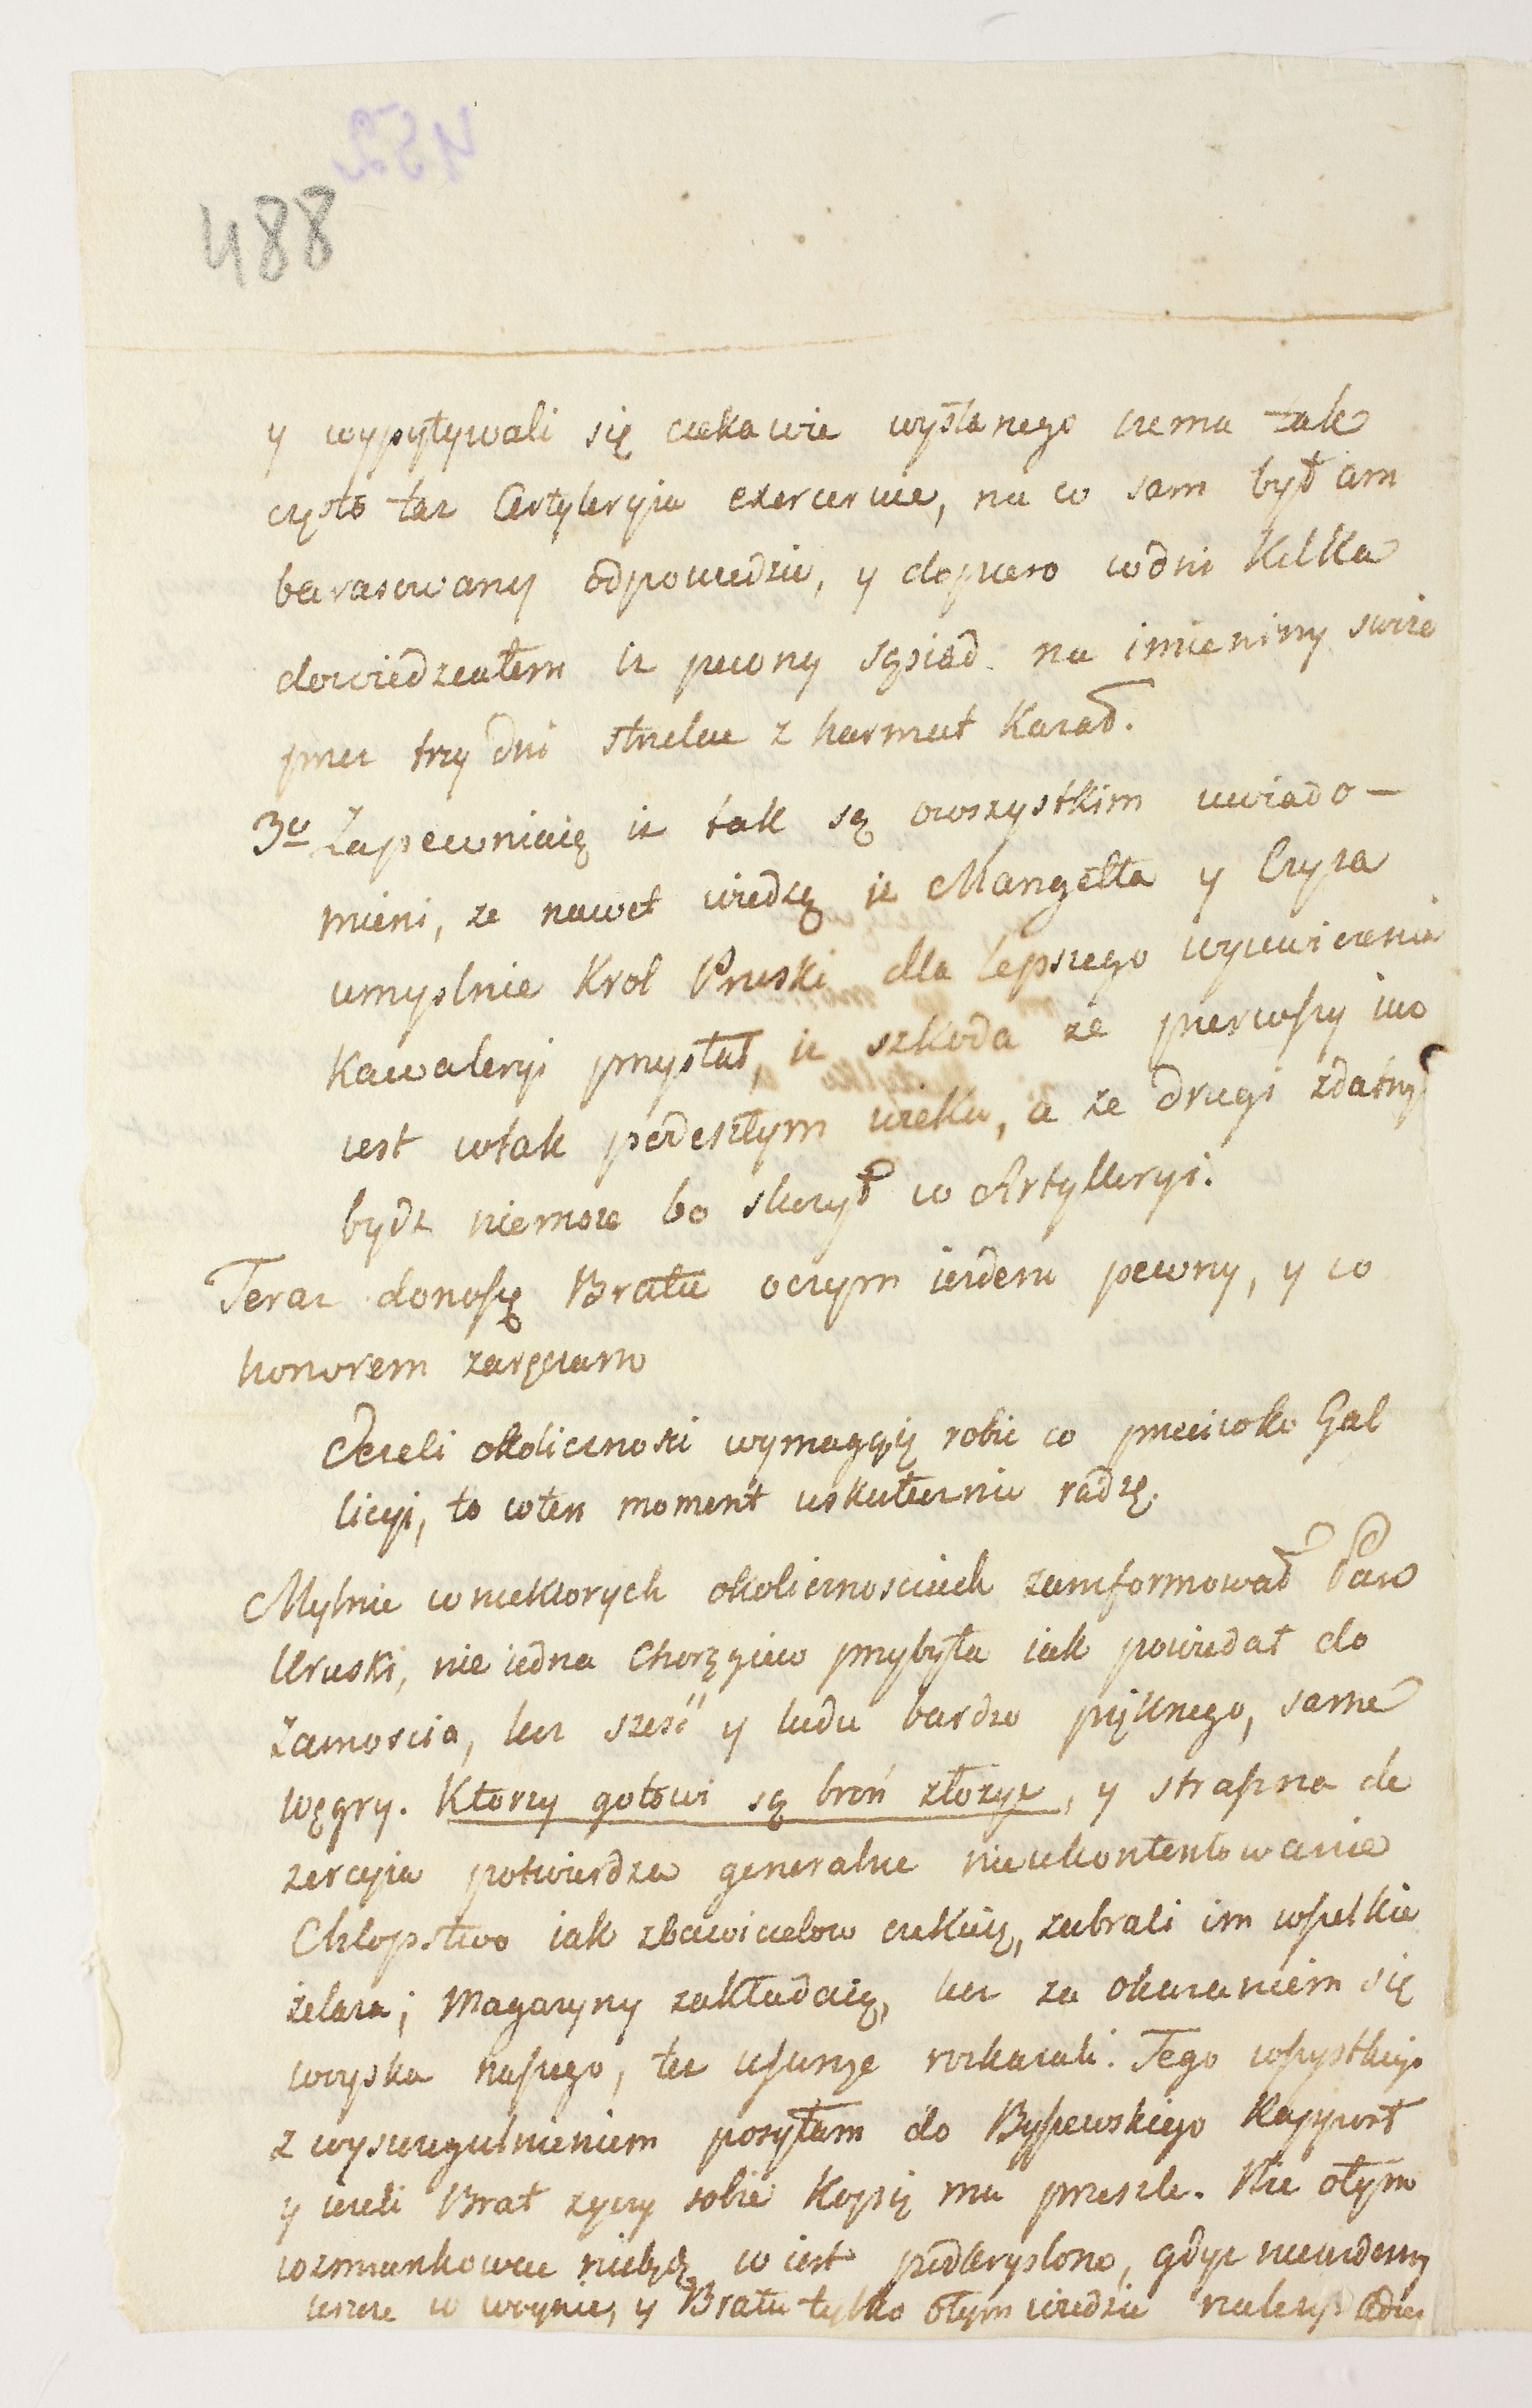 452
488
y wypytywali się ciekawie wysłanego czemu tak
często taz Artyleryia exerceruie, na co sam był am
barasowany odpowiedzią, y dopiero wdni kilka
dowiedziałem iz pewny sąsiad na imieniny swoie
przez trzy dni strzelać z harmat kazał.
3o Zapewniaią iz tak są owszystkim uwiado-
mieni, ze nawet wiedzą iz Mangetta y
umyslnie Krol Pruski dla lepszego wycwiczenia
Kawaleryi przysłał, iz szkoda ze pierwszy iuz
iest wtak podeszłym wieku, a ze drugi zdatny
bydz niemoze bo słuzył w Artylleryi.
Teraz donoszę Bratu oczym iestem pewny, y co
honorem zaręczam
Jezeli okolicznosci wymagaią robic co przeciwko Gal
licyi, to wten moment uskutecznic radzę.
Mylnie w niektorych okolicznosciach zainformował Pan
Uruski, nie iedna Chorągiew przybyła iak powiedał do
Zamoscia, lecz szesć y ludu bardzo pięknego, same
węgry. Ktorzy gotowi są broń złozyc, y straszna de
zercyia potwierdza generalne nieukontentowanie
Chłopstwo iak zbawicielow czekaią, zabrali im wszelkie
żelaza; Magazyny zakładaią, lecz za okazaniem się
woyska naszego, te usunąć rozkazali. Tego wszystkiego
z wyszczegulnieniem posyłam do Byszewskiego Rapport
y iezeli Brat zyczy sobie Kopią mu przeszle. Nie otym
wzmiankować niebędę co iest podkryslone, gdyz niewidemy
ieszcze w woynie, y Bratu tylko otym wiedzieć nalezy.